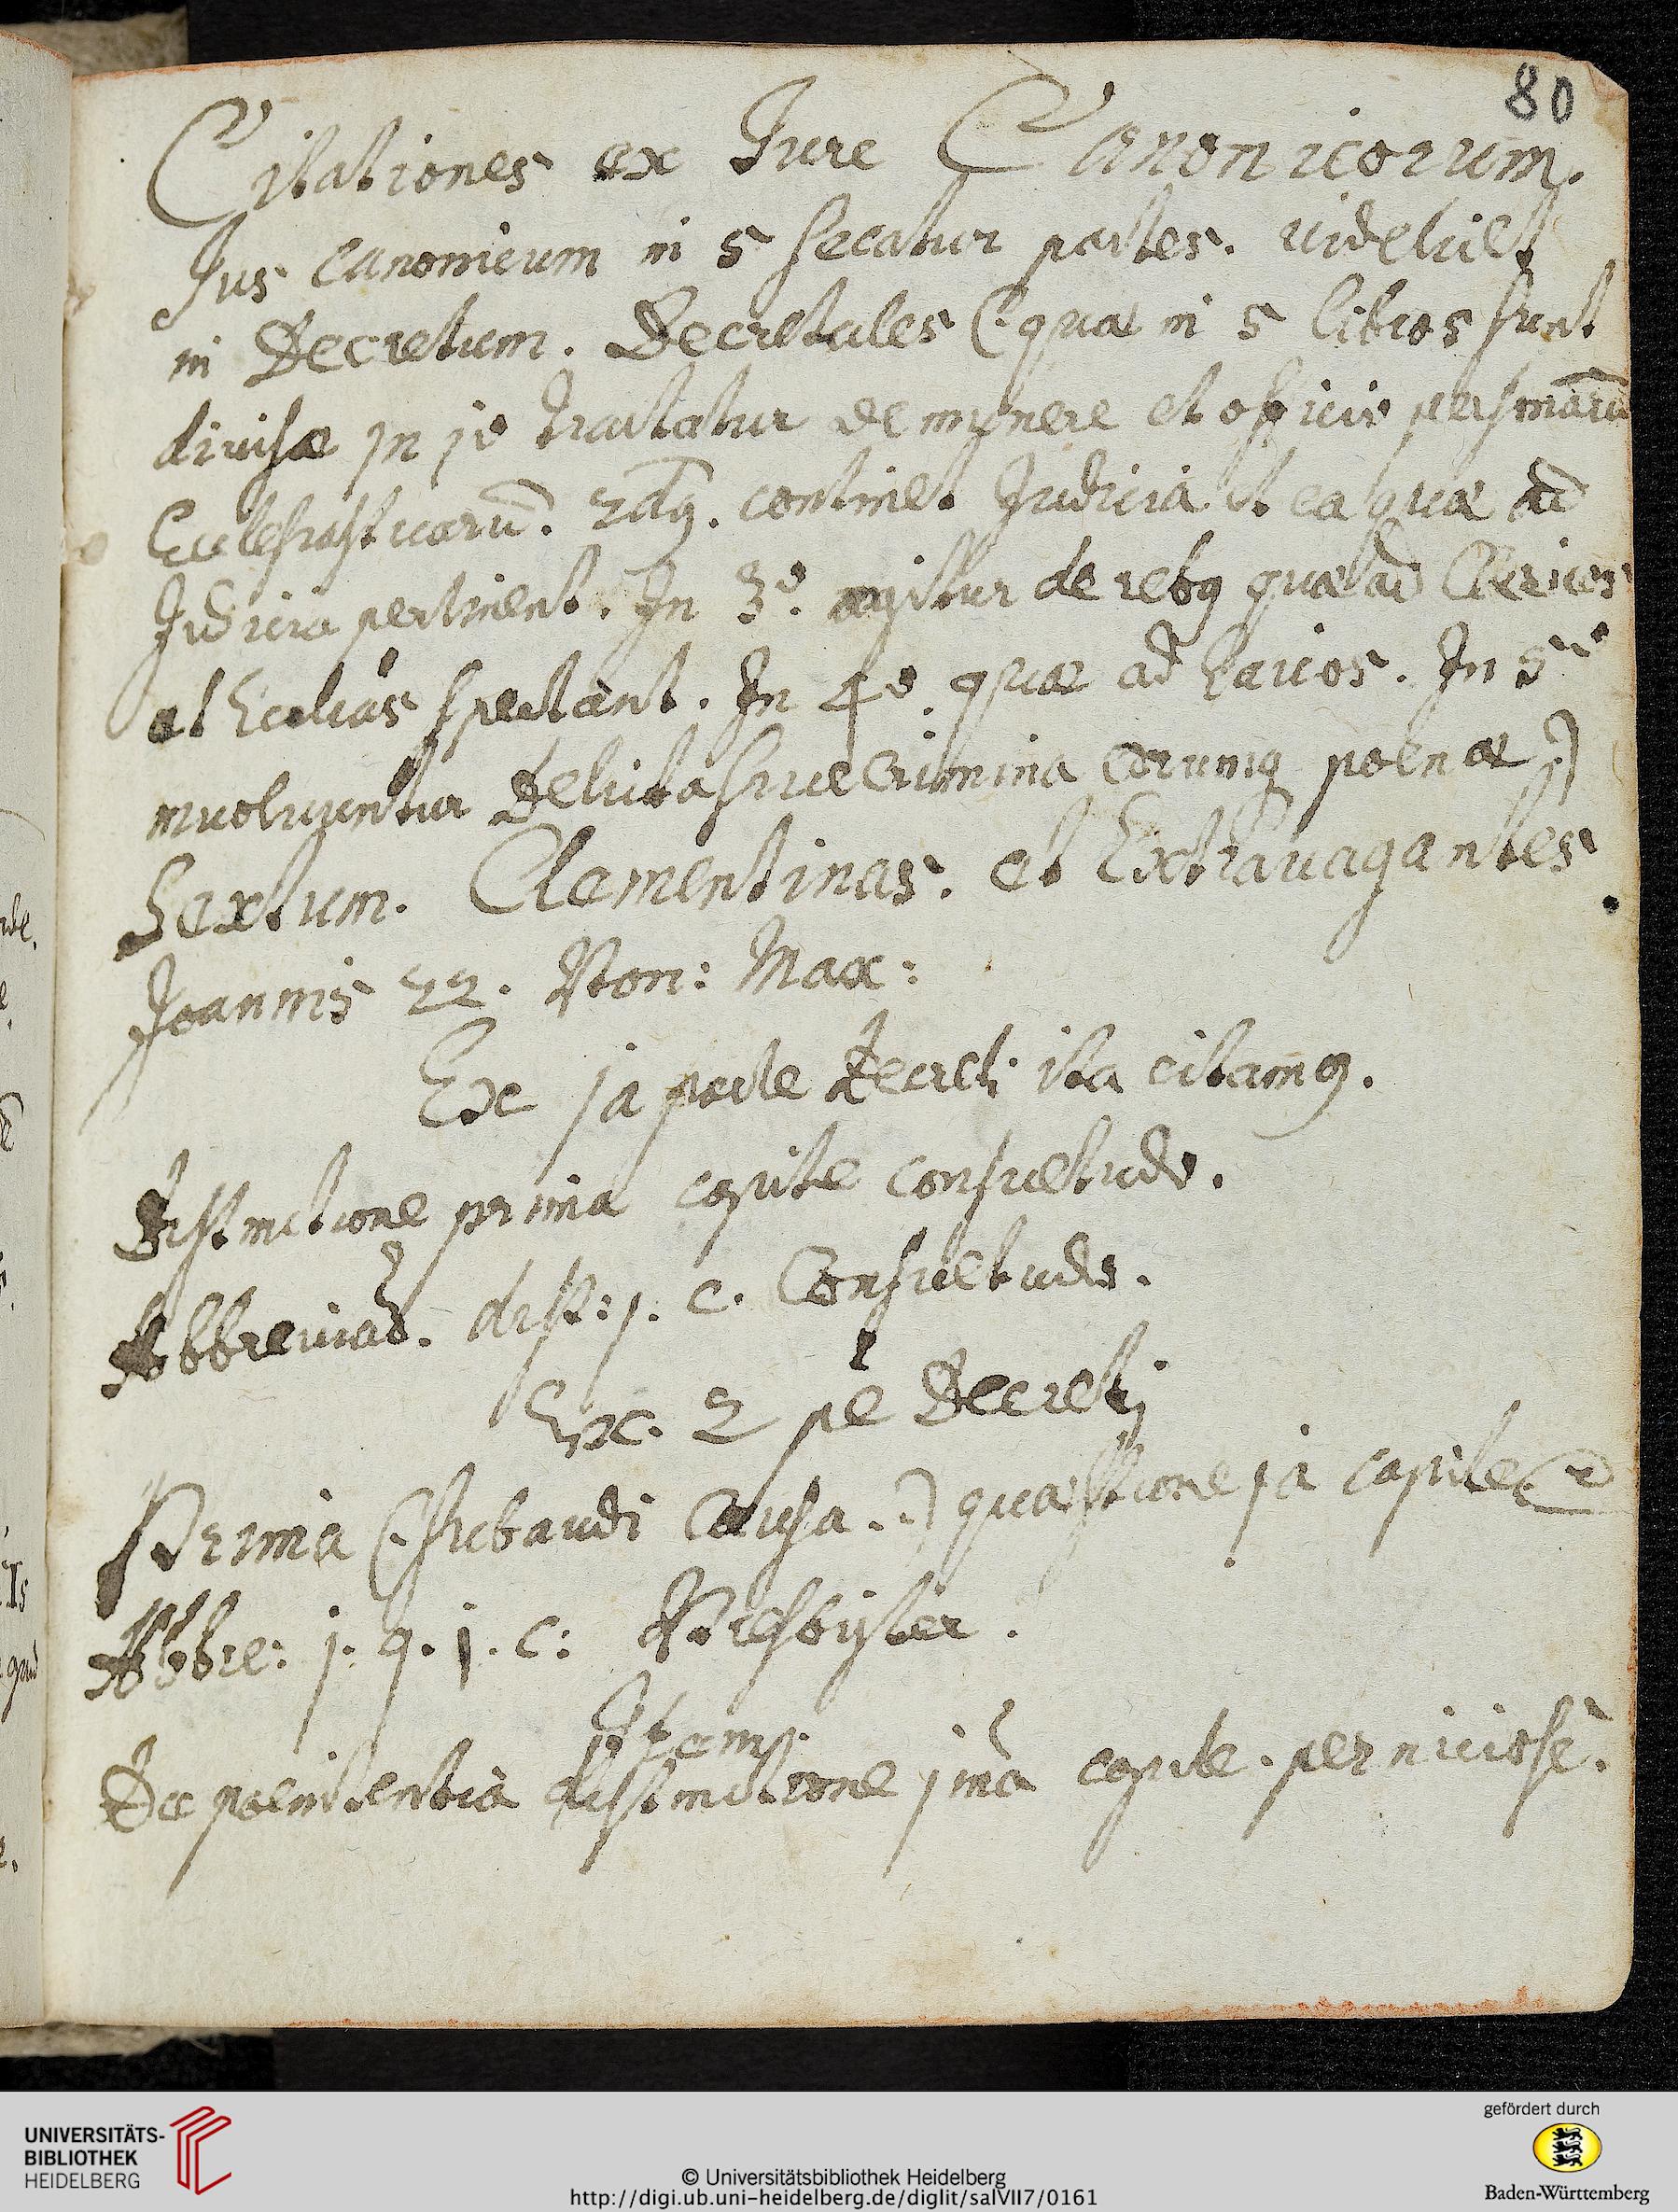 80
Citationes ex Jure Canonicorum.
Jus canonicum in 5 secatur partes. videlicet
in Decretum. Decretales (quæ in 5 libros sunt
divisæ In jo tractatur de munere et officio personarū
Ecclesiasticarū. 2dq. continet Judicia et ea quæ ad
Judicia pertinent. In 3o. agitur de rebq quæ ad Clericos
et Eccliās spectant. In 4o. quæ ad Laicos. In 5to
involvuntur Delicta sive Crimina eorumq poenæ.)
Sextum. Clementinas. et Extravagantes
Joannis 22. Pon: Max:
Ex ja parte Decreti ita citamq.
Distinctione prima capite consuetudo.
Abbreviad. dist: j. c. Consuetudo.
Ex. 2 pe Decretj
Prima (subaudi Causa..) quæstione ja capite
Abbre: j. q. j. c: Presbyter.
Item.
De poenitentia distinctione jma capite. perniciose.
UNIVERSITÄTS-
BIBLIOTHEK
HEIDELBERG
© Universitätsbibliothek Heidelberg
http://digi.ub.uni-heidelberg.de/diglit/salVII7/0161
gefördert durch
Baden-Württemberg